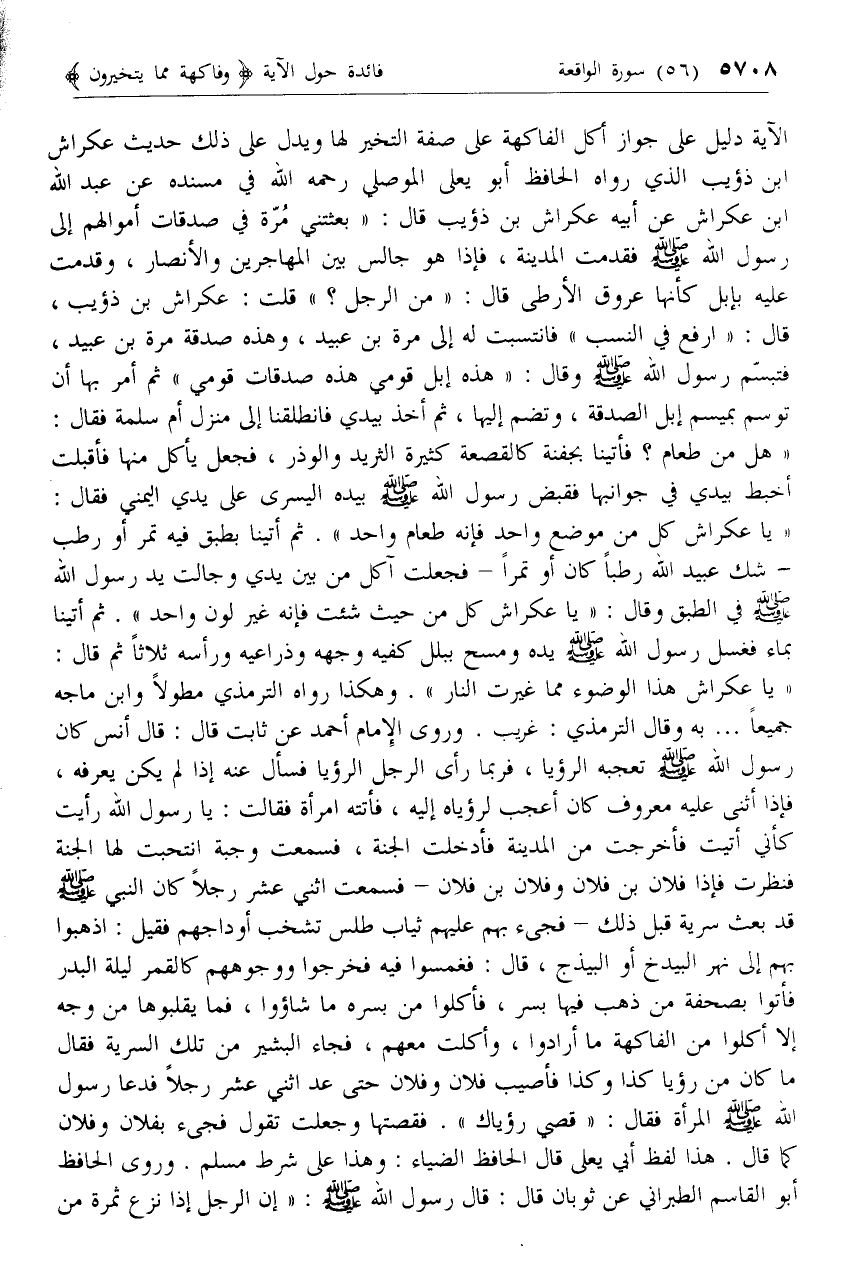 ٥٧٠٨ (٥٦) سورة الواقعة فائدة حول الآية ﴿ وفاكهة مما يتخيرون ﴾
الآية دليل على جواز أكل الفاكهة على صفة التخير لها ويدل على ذلك حديث عكراش
ابن ذؤيب الذي رواه الحافظ أبو يعلى الموصلي رحمه الله في مسنده عن عبد الله
ابن عكراش عن أبيه عكراش بن ذؤيب قال : « بعثتني مُرّة في صدقات أموالهم إلى
رسول الله ﷺ فقدمت المدينة ، فإذا هو جالس بين المهاجرين والأنصار ، وقدمت
عليه بإبل كأنها عروق الأرطى قال : « من الرجل ؟ » قلت : عكراش بن ذؤيب ،
قال : « ارفع في النسب » فانتسبت له إلى مرة بن عبيد ، وهذه صدقة مرة بن عبيد ،
فتبسّم رسول الله ﷺ وقال : « هذه إبل قومي هذه صدقات قومي » ثم أمر بها أن
توسم بميسم إبل الصدقة ، وتضم إليها ، ثم أخذ بيدي فانطلقنا إلى منزل أم سلمة فقال :
« هل من طعام ؟ فأتينا بجفنة كالقصعة كثيرة الثريد والوذر ، فجعل يأكل منها فأقبلت
أخبط بيدي في جوانبها فقبض رسول الله ﷺ بيده اليسرى على يدي اليمني فقال :
« يا عكراش كل من موضع واحد فإنه طعام واحد » . ثم أتينا بطبق فيه تمر أو رطب
– شك عبيد الله رطباً كان أو تمراً – فجعلت آكل من بين يدي وجالت يد رسول الله
ﷺ في الطبق وقال : « يا عكراش كل من حيث شئت فإنه غير لون واحد » . ثم أتينا
بماء فغسل رسول الله ﷺ يده ومسح ببلل كفيه وجهه وذراعيه ورأسه ثلاثاً ثم قال :
« يا عكراش هذا الوضوء مما غيرت النار » . وهكذا رواه الترمذي مطولاً وابن ماجه
جميعاً ... به وقال الترمذي : غريب . وروى الإمام أحمد عن ثابت قال : قال أنس كان
رسول الله ﷺ تعجبه الرؤيا ، فربما رأى الرجل الرؤيا فسأل عنه إذا لم يكن يعرفه ،
فإذا أثنى عليه معروف كان أعجب لرؤياه إليه ، فأتته امرأة فقالت : يا رسول الله رأيت
كأني أتيت فأخرجت من المدينة فأدخلت الجنة ، فسمعت وجبة انتحبت لها الجنة
فنظرت فإذا فلان بن فلان وفلان بن فلان – فسمعت اثني عشر رجلاً كان النبي ﷺ
قد بعث سرية قبل ذلك – فجىء بهم عليهم ثياب طلس تشخب أوداجهم فقيل : اذهبوا
بهم إلى نهر البيدخ أو البيذج ، قال : فغمسوا فيه فخرجوا ووجوههم كالقمر ليلة البدر
فأتوا بصحفة من ذهب فيها بسر ، فأكلوا من بسره ما شاؤوا ، فما يقلبوها من وجه
إلا أكلوا من الفاكهة ما أرادوا ، وأكلت معهم ، فجاء البشير من تلك السرية فقال
ما كان من رؤيا كذا وكذا فأصيب فلان وفلان حتى عد اثني عشر رجلاً فدعا رسول
الله ﷺ المرأة فقال : « قصي رؤياك » . فقصتها وجعلت تقول فجىء بفلان وفلان
كما قال . هذا لفظ أبي يعلى قال الحافظ الضياء : وهذا على شرط مسلم . وروى الحافظ
أبو القاسم الطبراني عن ثوبان قال : قال رسول الله ﷺ : « إن الرجل إذا نزع ثمرة من